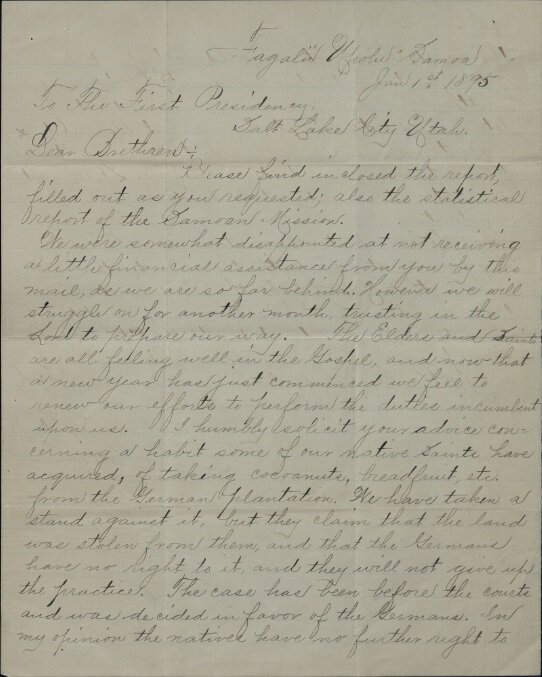 Fagalii Upolu Samoa
Jan 1st 1895
To The First Presidency,
Salt Lake City Utah.
Dear Brethren:
Please find inclosed the report,
filled out as you requested; also the statistical
report of the Samoan Mission.
We were somewhat disappointed at not receiving
a little financial assistance from you by this
mail, as we are so far behind. However we will
struggle on for another month, trusting in the
Lord to prepare our way. The Elders and Saints
are all feeling well in the Gospel, and now that
a new year has just commenced we feel to
renew our efforts to perform the duties incumbent
upon us. I humbly solicit your advice con-
cerning a habit some of our native Saints have
acquired, of taking cocoanuts, breadfruit, etc.
from the German plantation. We have taken a
stand against it, but they claim that the land
was stolen from them, and that the Germans
have no right to it, and they will not give up
the practice. The case has been before the courts
and was decided in favor of the Germans. In
my opinion the natives have no further right to